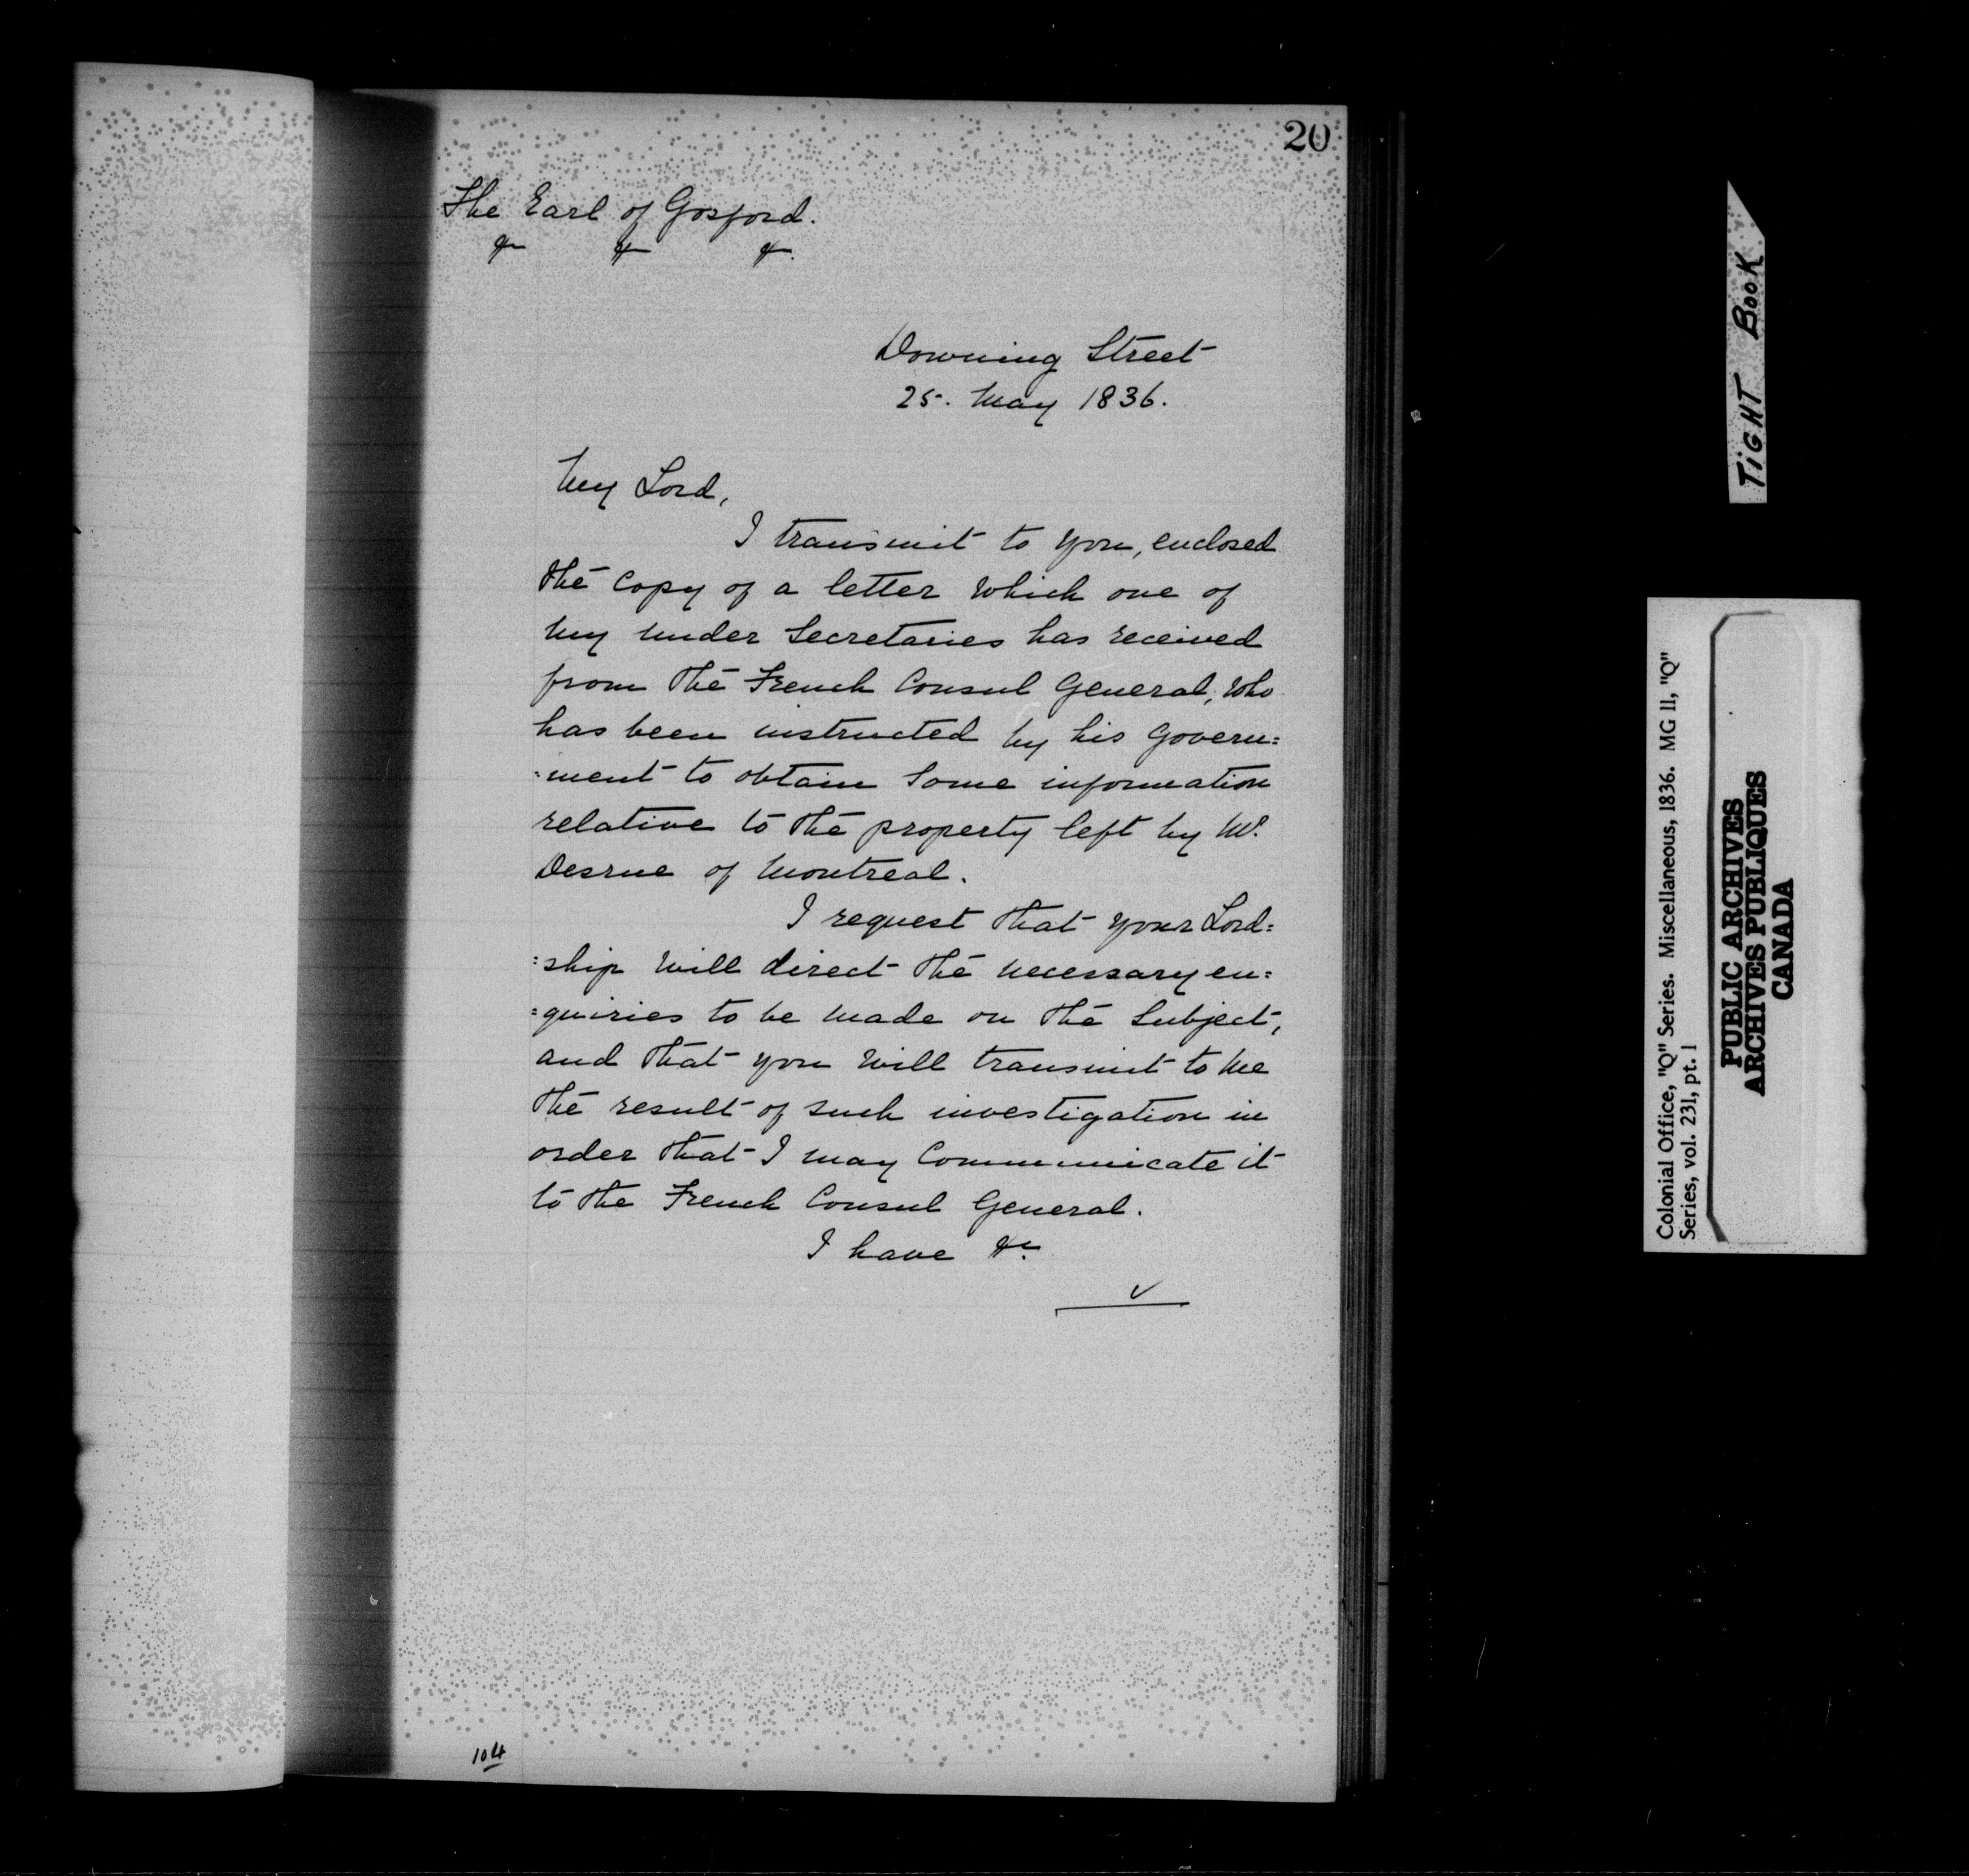 20
The Earl of Gosford.
& & &.
Downing Street
25. May 1836.
My Lord,
I transmit to you, enclosed
the Copy of a letter which one of
my under Secretaries has received
from the French Consul General, who
has been instructed by his Govern=
=ment to obtain some information
relative to the property left by Mr.
Desrue of Montreal.
I request that your Lord=
=ship will direct the necessary en=
=quiries to be made on the Subject,
and that you will transmit to me
the result of such investigation in
order that I may Communicate it
to the French Consul General.
I have &c.
104
TIGHT BOOK
Colonial Office, "Q" Series. Miscellaneous, 1836. MG 11, "Q"
Series, vol. 231, pt. 1
PUBLIC ARCHIVES
ARCHIVES PUBLIQUES
CANADA